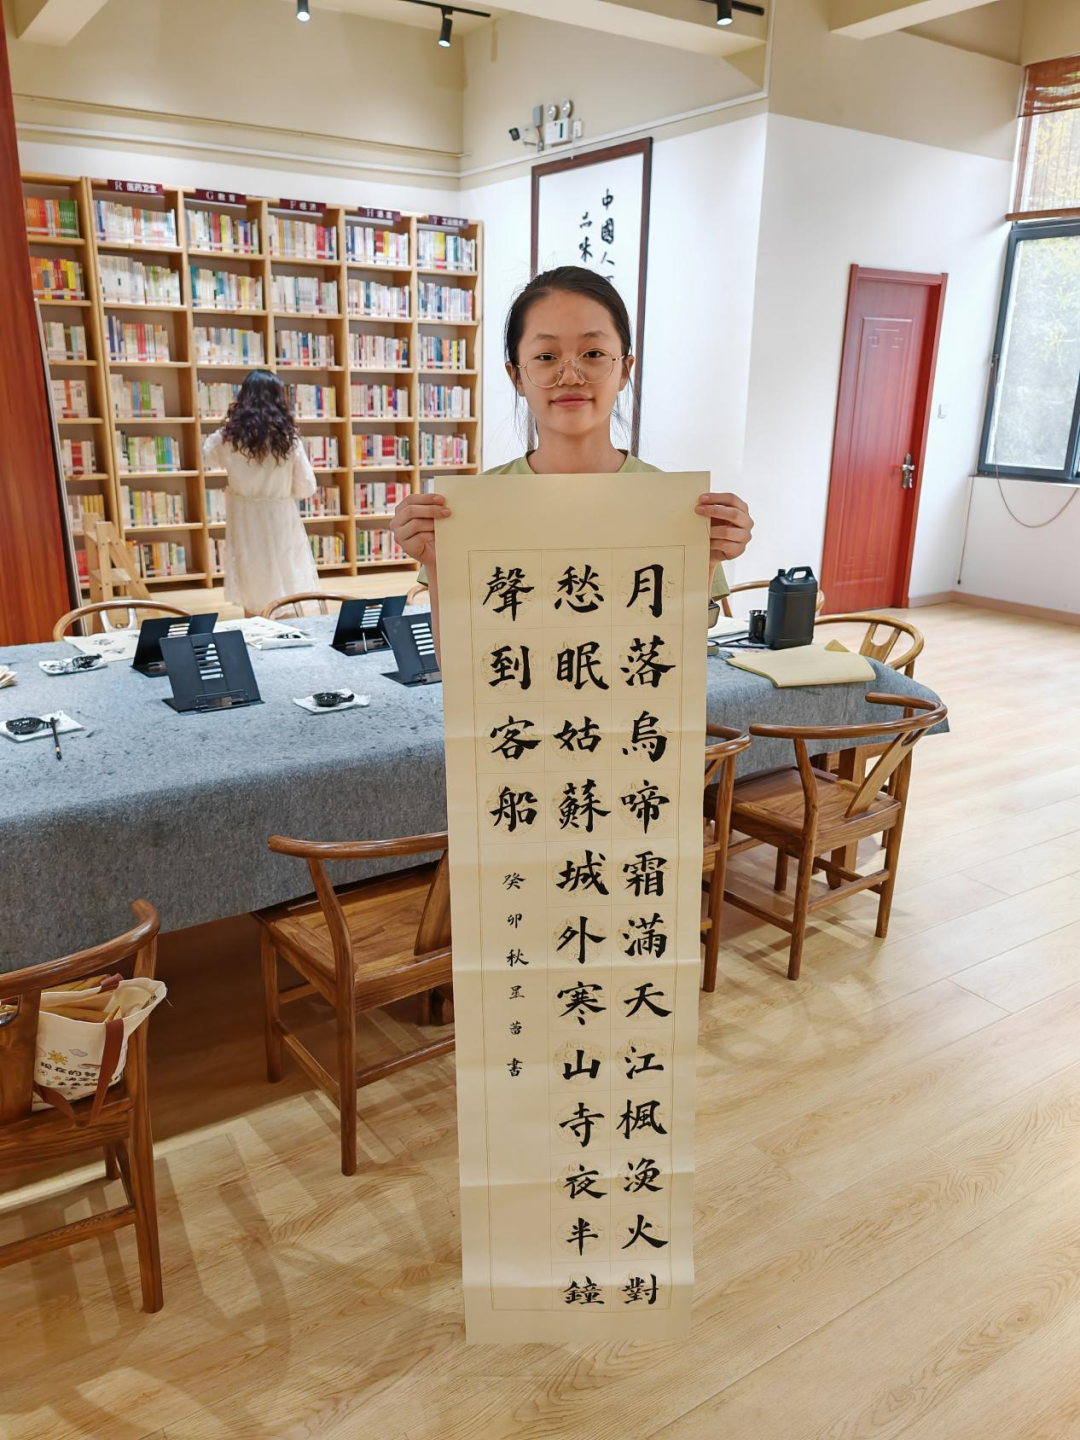 R 医药卫生
G 教育
F 经济
H 语言
T 工业技术
中國人
品味
月落烏啼霜滿天江楓渔火對
愁眠姑蘇城外寒山寺夜半鐘
聲到客船
癸卯秋星書
现在的努